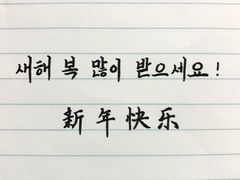 새해 복 많이 받으세요!
新年快乐